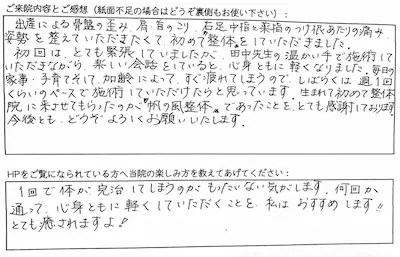 ご来院内容とご感想（紙面不足の場合はどうぞ裏側もお使い下さい）：
出産による骨盤の歪み、肩・首のこり、右足中指と薬指のつけ根あたりの痛み、
姿勢を整えていただきたくて、初めて"整体"をしていただきました。
初回は、とても緊張していましたが、田中先生の温かい手で施術して
いただきながら、楽しい会話をしていると、心身ともに軽くなりました。毎日の
家事・子育てそして、加齢によって、すぐ疲れてしまうので、しばらくは週1回
くらいのペースで施術していただけたらと思っています。生まれて初めて整体
院に来させてもらったのが"帆の風整体"であったことを、とても感謝しております。
今後とも、どうぞよろしくお願いいたします。
HPをご覧になられている方へ当院の楽しみ方を教えてあげてください：
1回で体が完治してしまうのが、もったいない気がします。何回か
通って、心身ともに軽くしていただくことを、私はおすすめします!!
とても癒されますよ！